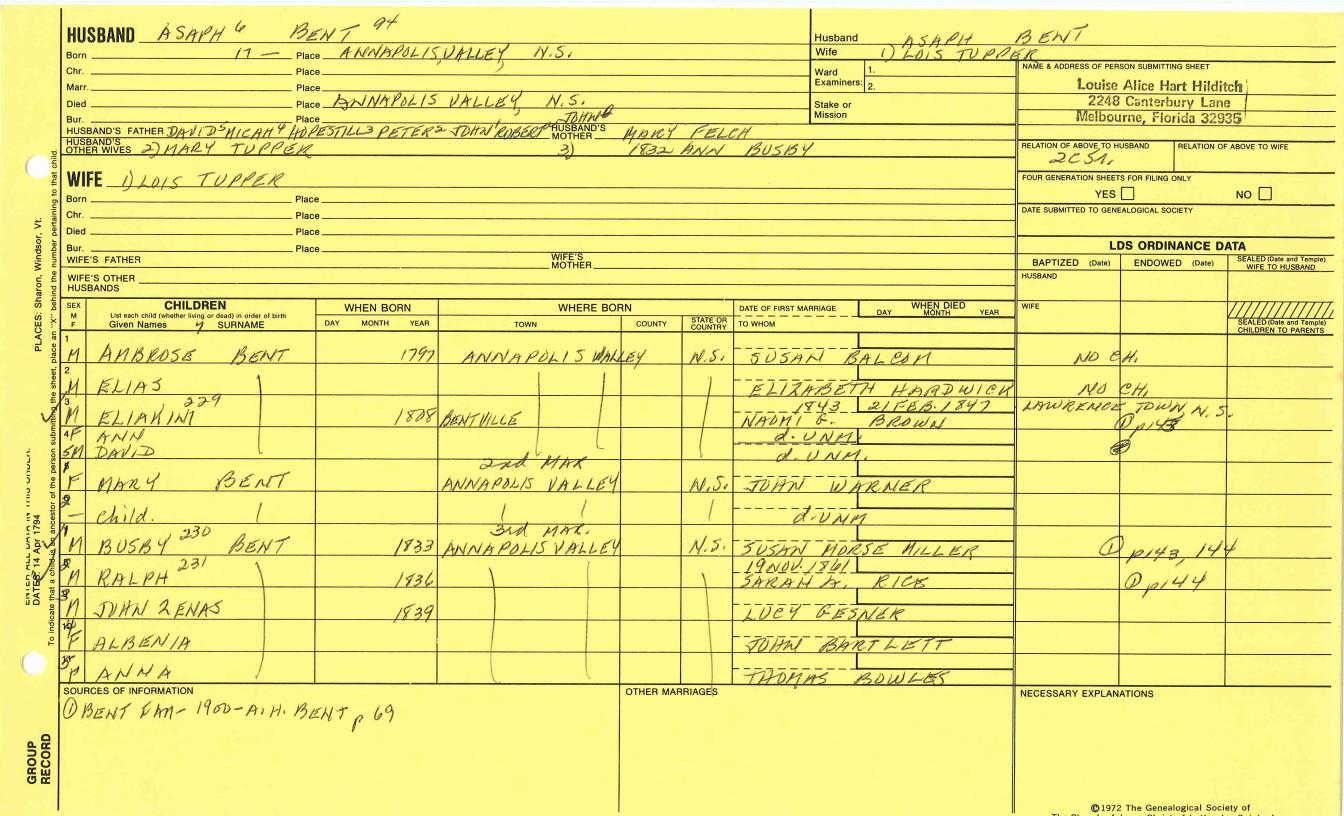 HUSBAND ASAPH 6 BENT 94
Born 17 — Place ANNAPOLIS VALLEY, N.S.
Chr. Place
Marr. Place
Died Place ANNAPOLIS VALLEY, N.S.
Bur. Place
HUSBAND'S FATHER DAVID 5 MICAH 4 HOPESTILL 3 PETER 2 JOHN 1 ROBERT JOHN HUSBAND'S MOTHER MARY FELCH
HUSBAND'S OTHER WIVES 2) MARY TUPPER 3) 1832 ANN BUSBY
Husband ASAPH BENT
Wife 1) LOIS TUPPER
Ward Examiners: 1.
2.
Stake or Mission
NAME & ADDRESS OF PERSON SUBMITTING SHEET
Louise Alice Hart Hilditch
2248 Canterbury Lane
Melbourne, Florida 32935
RELATION OF ABOVE TO HUSBAND RELATION OF ABOVE TO WIFE
FOUR GENERATION SHEETS FOR FILING ONLY
YES NO
DATE SUBMITTED TO GENEALOGICAL SOCIETY
WIFE 1) LOIS TUPPER
Born Place
Chr. Place
Died Place
Bur. Place
WIFE'S FATHER WIFE'S MOTHER
WIFE'S OTHER HUSBANDS
LDS ORDINANCE DATA
BAPTIZED (Date) ENDOWED (Date) SEALED (Date and Temple) WIFE TO HUSBAND
HUSBAND
WIFE
SEALED (Date and Temple) CHILDREN TO PARENTS
SEX M F CHILDREN List each child (whether living or dead) in order of birth Given Names 7 SURNAME
WHEN BORN DAY MONTH YEAR
WHERE BORN TOWN COUNTY STATE OR COUNTRY
DATE OF FIRST MARRIAGE TO WHOM
WHEN DIED DAY MONTH YEAR
1 M AMBROSE BENT 1797 ANNAPOLIS VALLEY N.S. SUSAN BALCOM NO CH.
2 M ELIAS ELIZABETH HARDWICK NO CH.
3 M ELIAKIM 229 1808 BENTVILLE 1843 21 FEB. 1847 NAOMI G. BROWN LAWRENCE TOWN, N.S. ① p143
4 F ANN d. UNM.
5 M DAVID d. UNM.
2nd MAR
F MARY BENT ANNAPOLIS VALLEY N.S. JOHN WARNER
2 — Child. d. UNM
3rd MAR.
1 M BUSBY 230 BENT 1833 ANNAPOLIS VALLEY N.S. SUSAN MORSE MILLER ① p143, 144
2 M RALPH 231 1836 19 NOV. 1861 SARAH A. RICE ① p144
3 M JOHN ZENAS 1839 LUCY GESNER
4 F ALBENIA JOHN BARTLETT
5 F ANNA THOMAS BOWLES
SOURCES OF INFORMATION
① BENT FAM - 1900 - A.H. BENT p 69
OTHER MARRIAGES
NECESSARY EXPLANATIONS
©1972 The Genealogical Society of
PLACES: Sharon, Windsor, Vt.
DATES: 14 Apr 1794
To indicate that a child is an ancestor of the person submitting the sheet, place an "X" behind the number pertaining to that child.
GROUP RECORD